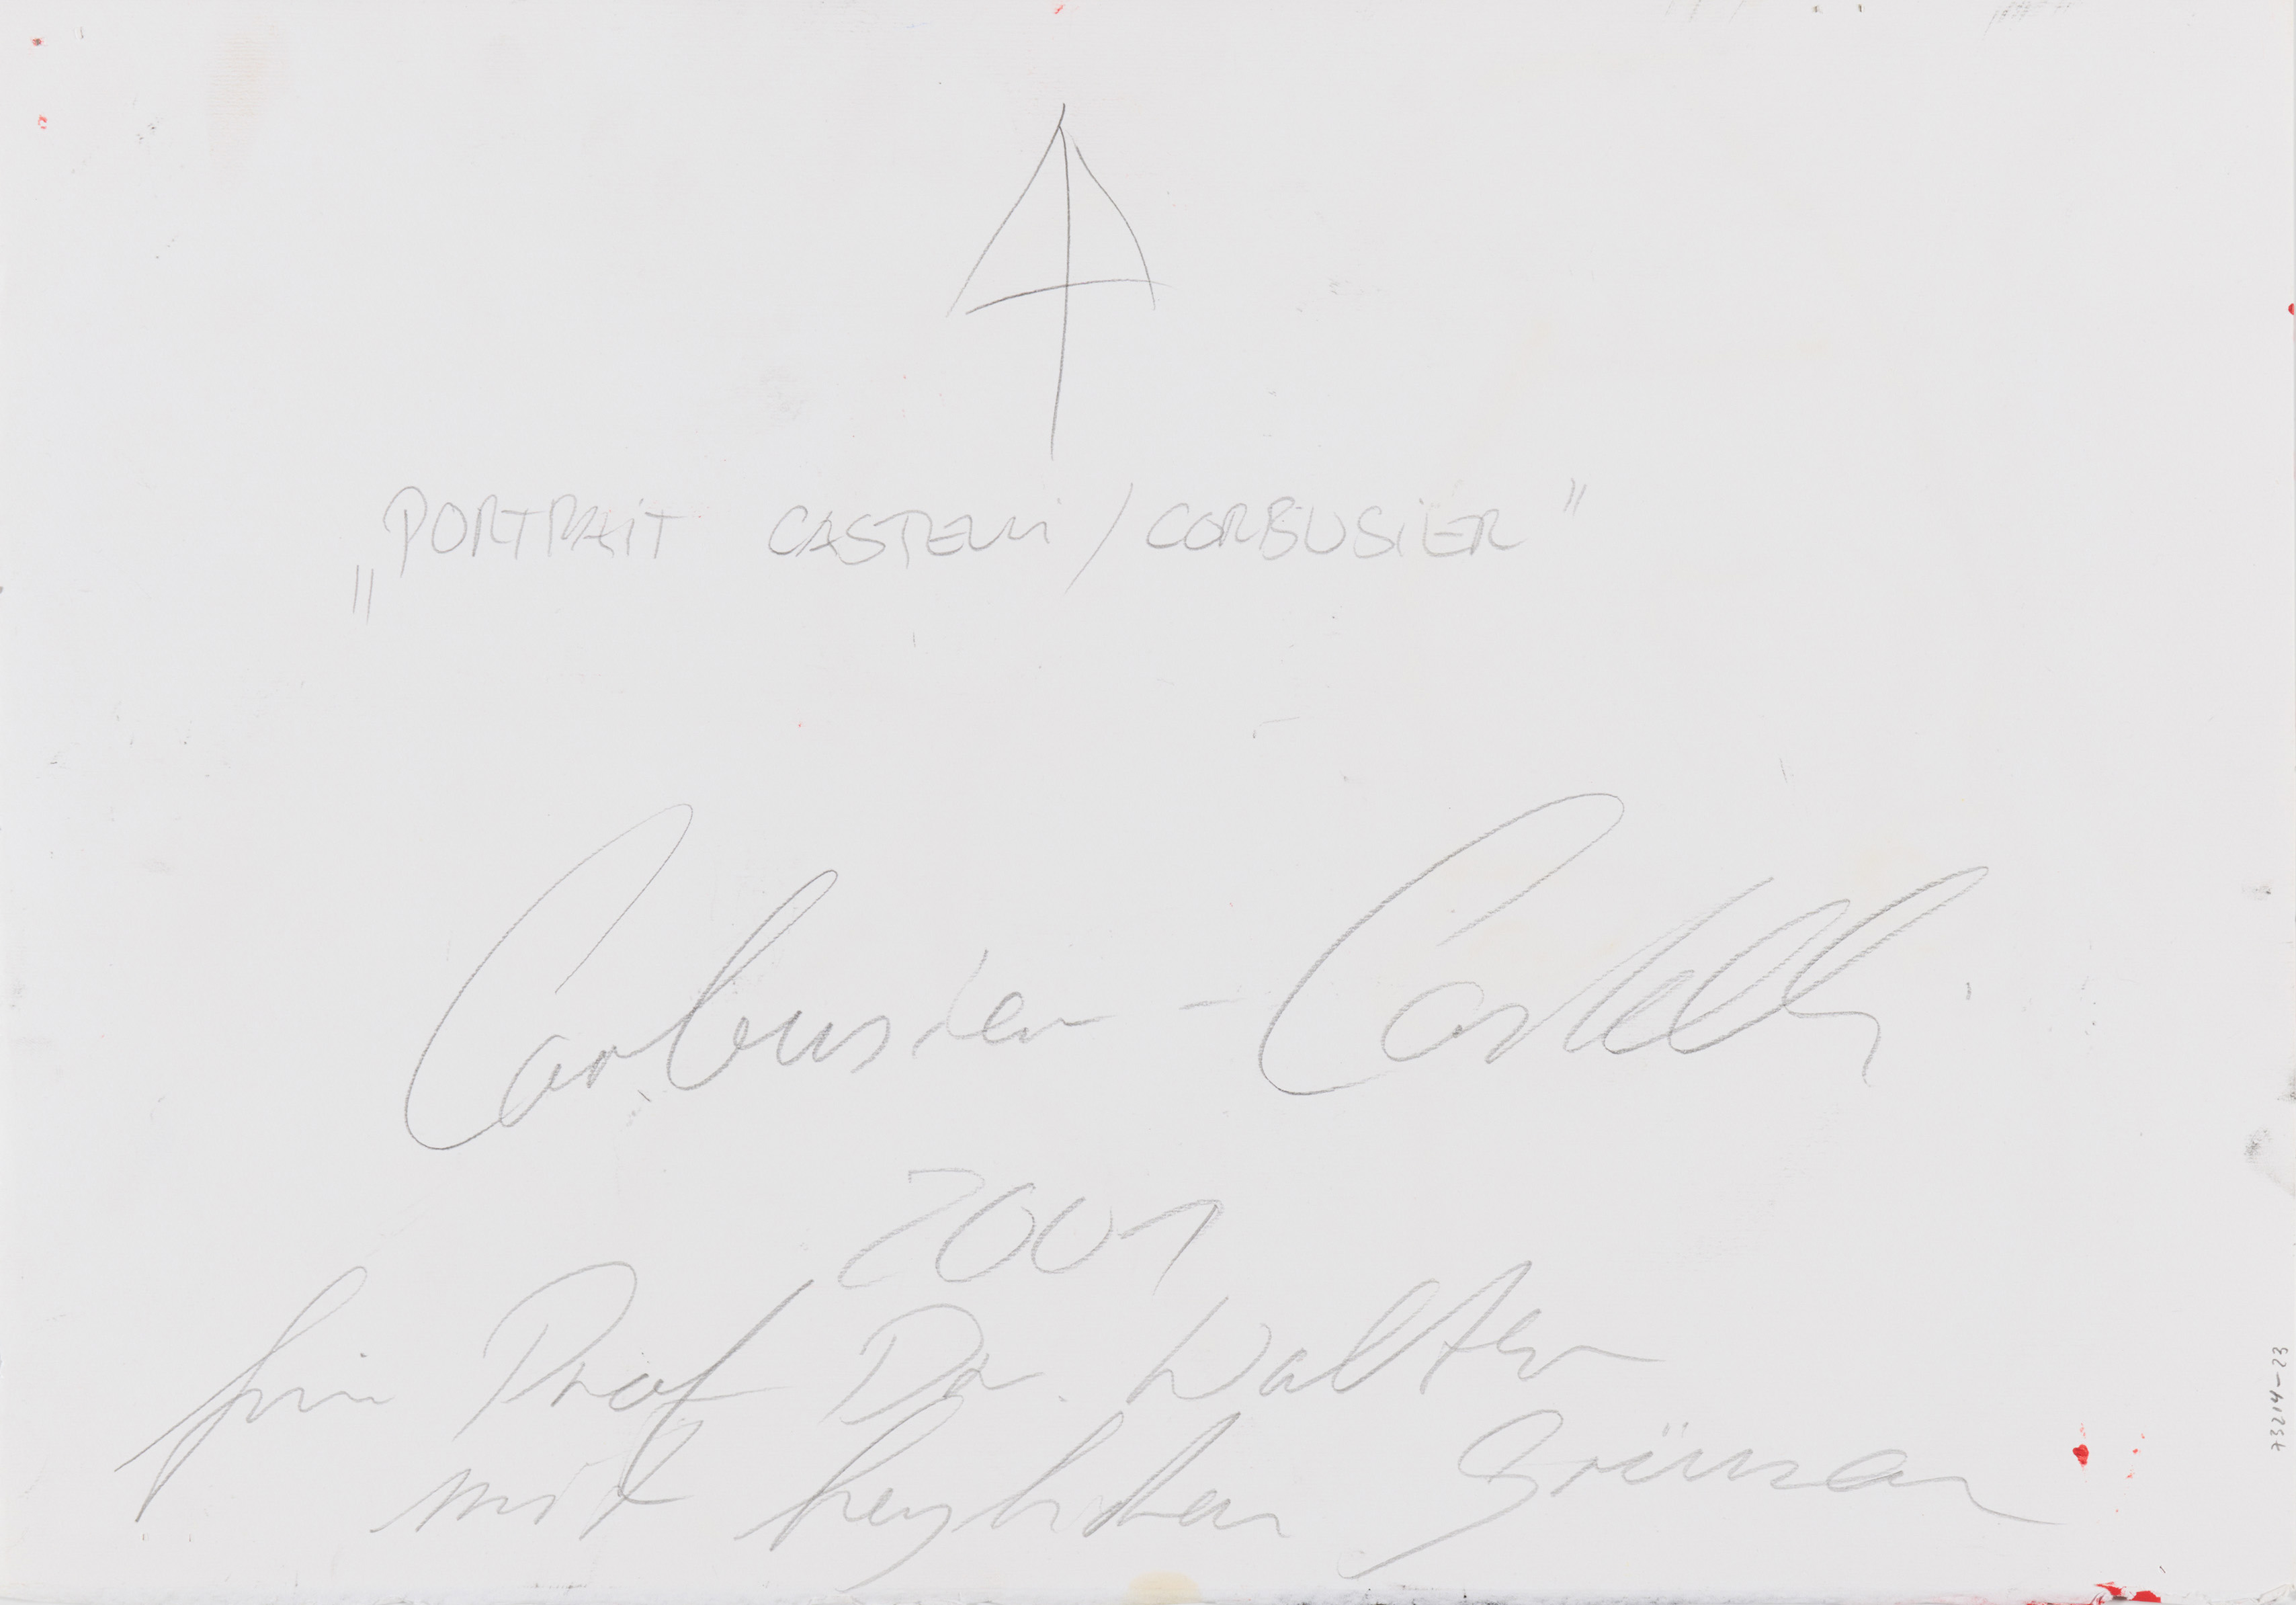 „PORTRAiT CASTELLi / CORBUSiER"
Corbusier - Castelli
2001
für Prof Dr. Walter
mit herzlichen Grüssen
73214-23